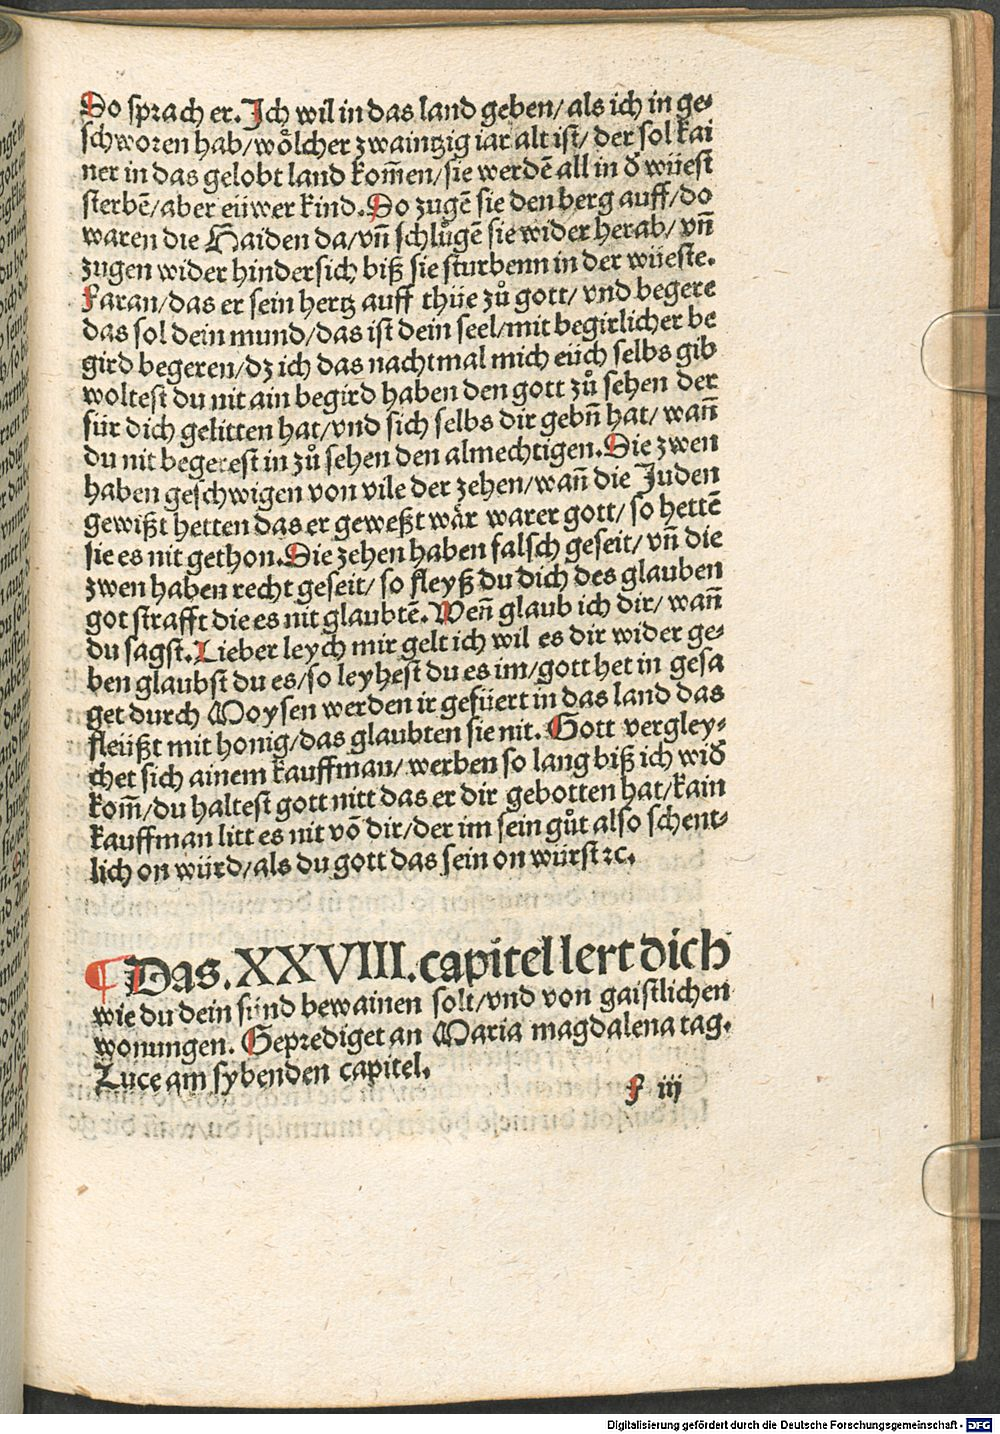 So sprach er. Ich wil in das land geben/ als ich in ge⸗
schworen hab/ woͤlcher zwaintzig iar alt ist/ der sol kai
ner in das gelobt land kom̃en/ sie werdẽ all in ð wüest
sterbẽ/ aber eüwer kind. So zugẽ sie den berg auff/ do
waren die Haiden da/ vñ schluͦgẽ sie wider herab/ vñ
zugen wider hindersich biß sie sturbenn in der wüeste.
Faran/ das er sein hertz auff thüe zuͦ gott/ vnd begere
das sol dein mund/ das ist dein seel/ mit begirlicher be
gird begeren/ dz ich das nachtmal mich eüch selbs gib
woltest du nit ain begird haben den gott zuͦ sehen der
für dich gelitten hat/ vnd sich selbs dir gebñ hat/ wañ
du nit begerest in zuͦ sehen den almechtigen. Die zwen
haben geschwigen von vile der zehen/ wañ die Juden
gewißt hetten das er geweßt waͤr warer gott/ so hettẽ
sie es nit gethon. Die zehen haben falsch geseit/ vñ die
zwen haben recht geseit/ so fleyß du dich des glauben
got strafft die es nit glaubtẽ. Weñ glaub ich dir/ wañ
du sagst. Lieber leych mir gelt ich wil es dir wider ge⸗
ben glaubst du es/ so leyhest du es im/ gott het in gesa
get durch Moysen werden ir gefüert in das land das
fleüßt mit honig/ das glaubten sie nit. Gott vergley⸗
chet sich ainem kauffman/ werben so lang biß ich wið
kom̃/ du haltest gott nitt das er dir gebotten hat/ kain
kauffman litt es nit võ dir/ der im sein guͦt also schent⸗
lich on würd/ als du gott das sein on würst ⁊c.
¶ Das. XXVIII. capitel lert dich
wie du dein sünd bewainen solt/ vnd von gaistlichen
wonungen. Geprediget an Maria magdalena tag.
Luce am sybenden capitel.
f iii
Digitalisierung gefördert durch die Deutsche Forschungsgemeinschaft - DFG